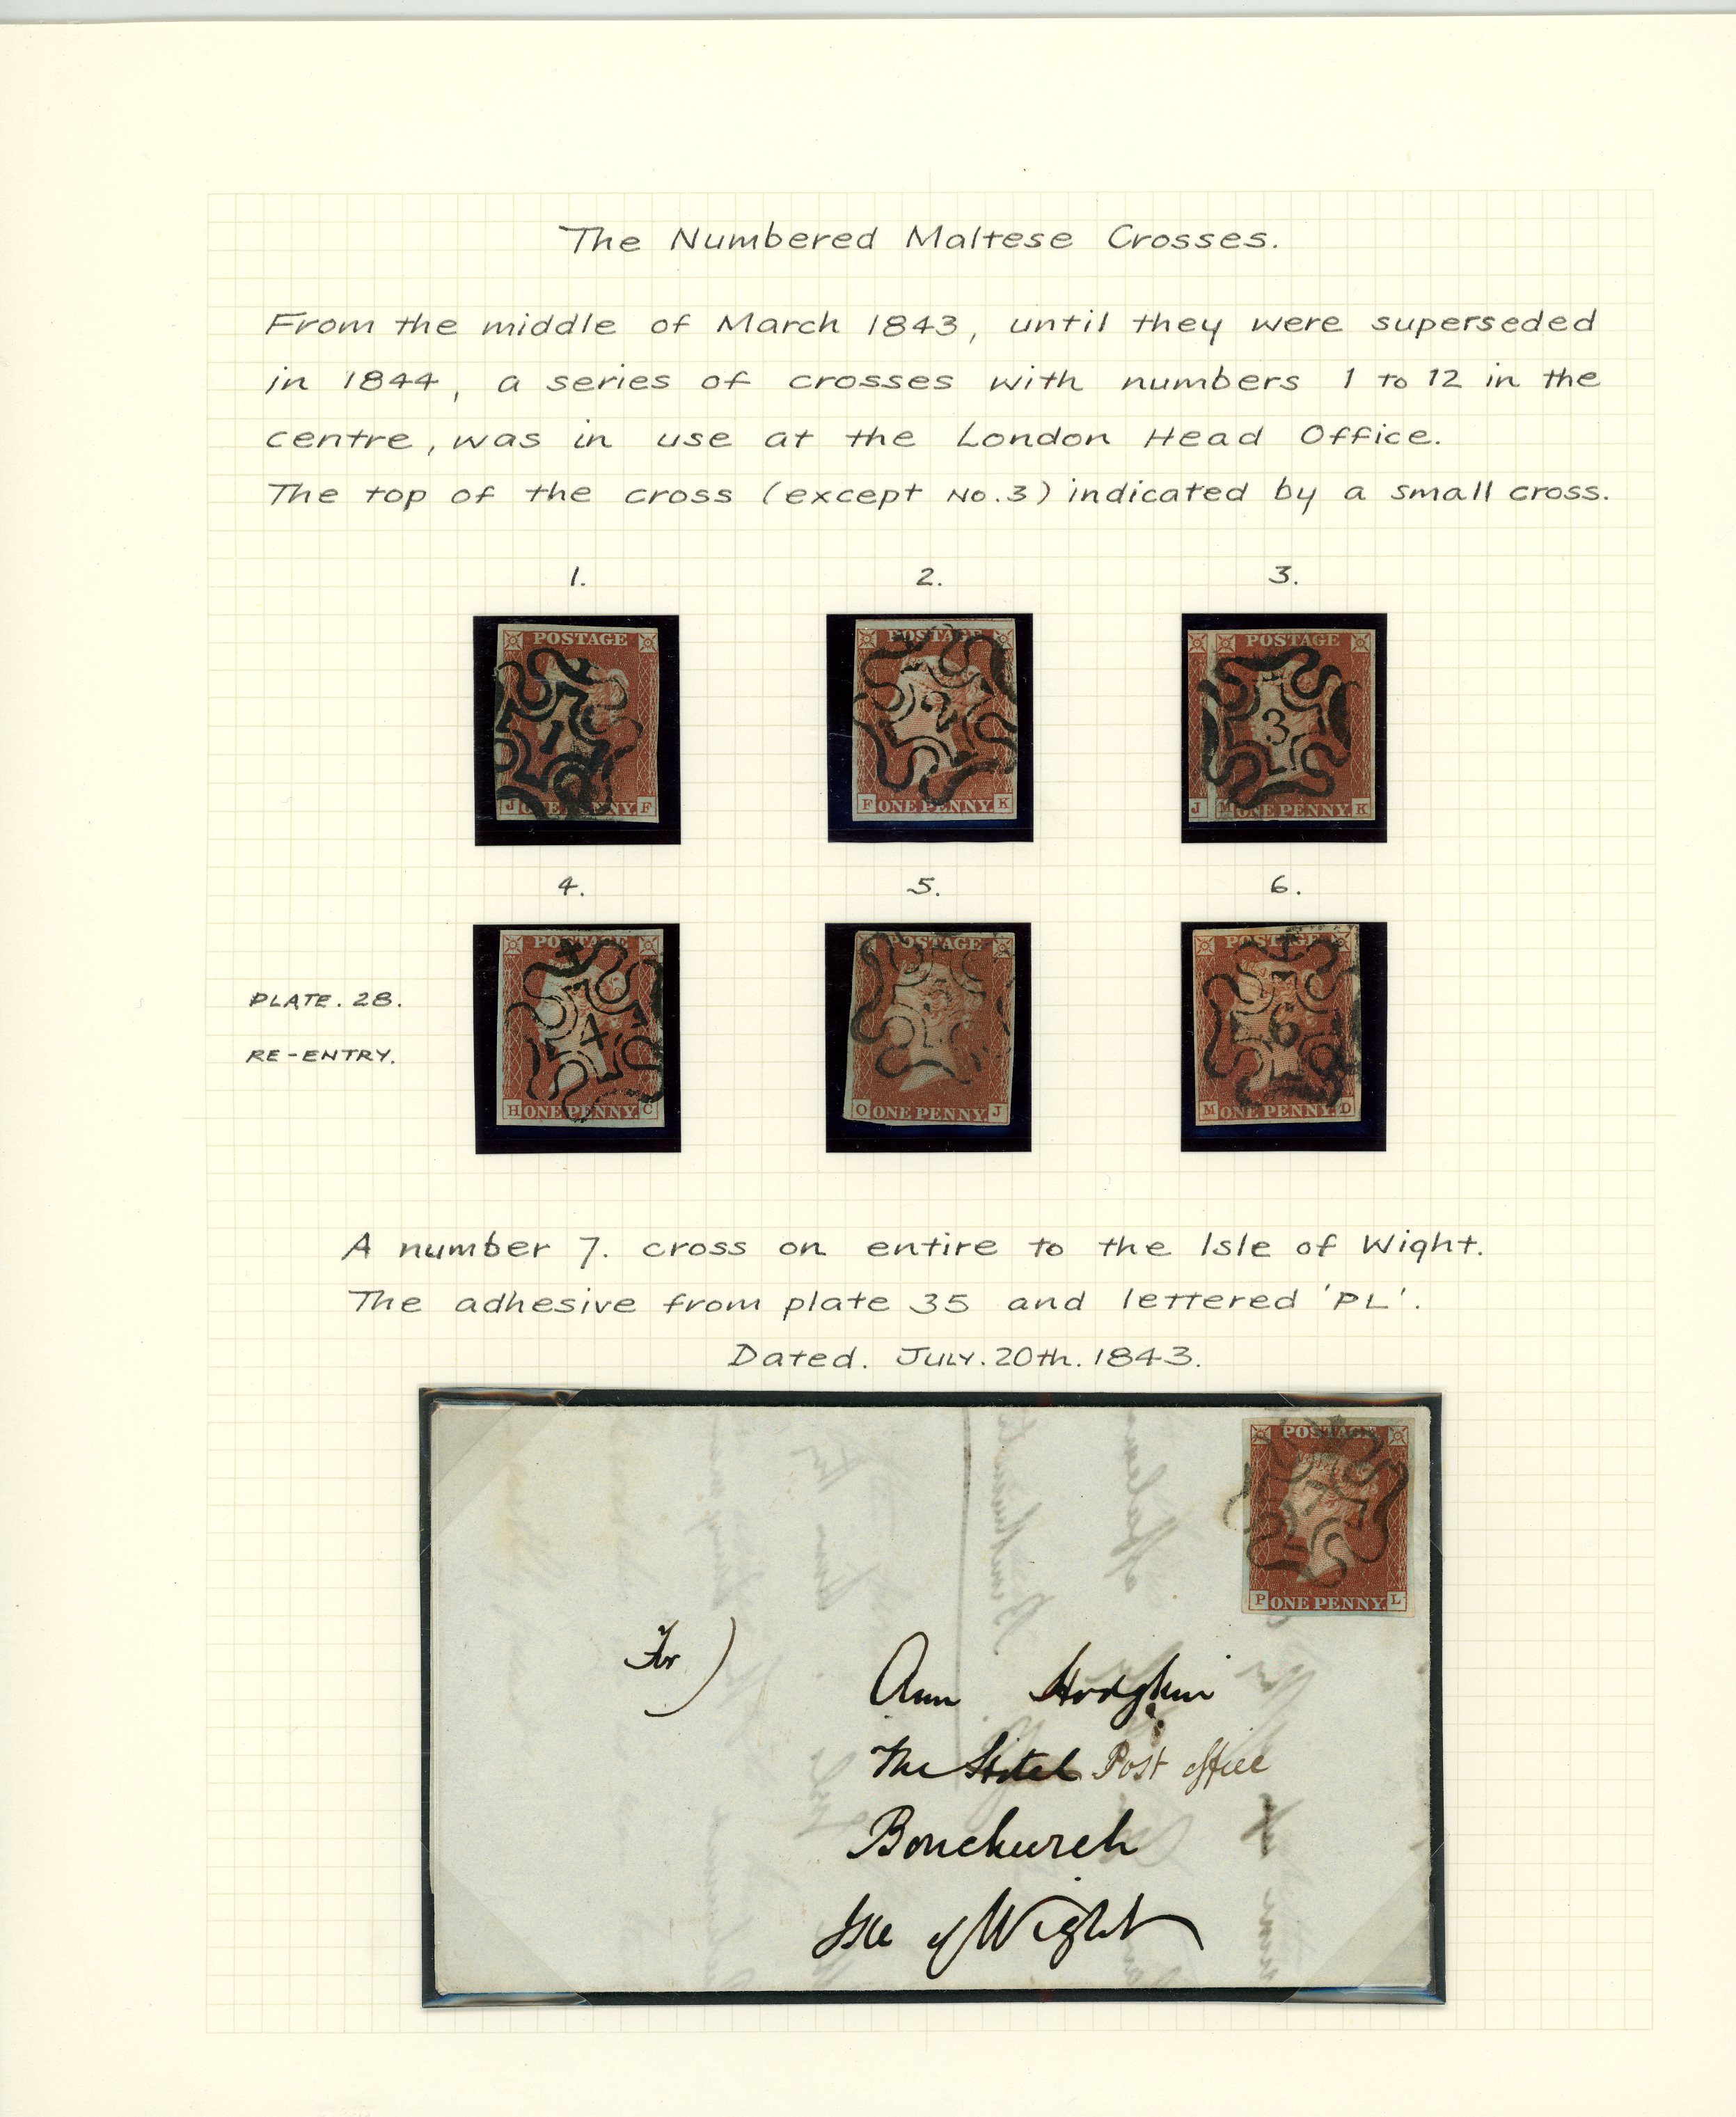 The Numbered Maltese Crosses.
From the middle of March 1843, until they were superseded
in 1844, a series of crosses with numbers 1 to 12 in the
centre, was in use at the London Head Office.
The top of the cross (except No.3) indicated by a small cross.
1. 2. 3.
POSTAGE POSTAGE POSTAGE
1 2 3
J ONE PENNY. F F ONE PENNY. K J M ONE PENNY. K
4. 5. 6.
PLATE. 28.
RE-ENTRY.
POSTAGE POSTAGE POSTAGE
4 6
H ONE PENNY. C O ONE PENNY. J M ONE PENNY. D
A number 7. cross on entire to the Isle of Wight.
The adhesive from plate 35 and lettered 'PL'.
Dated. JULY. 20th. 1843.
POSTAGE
P ONE PENNY. L
For)
Ann Hodgkin
The Hotel Post office
Bonchurch
Isle of Wight